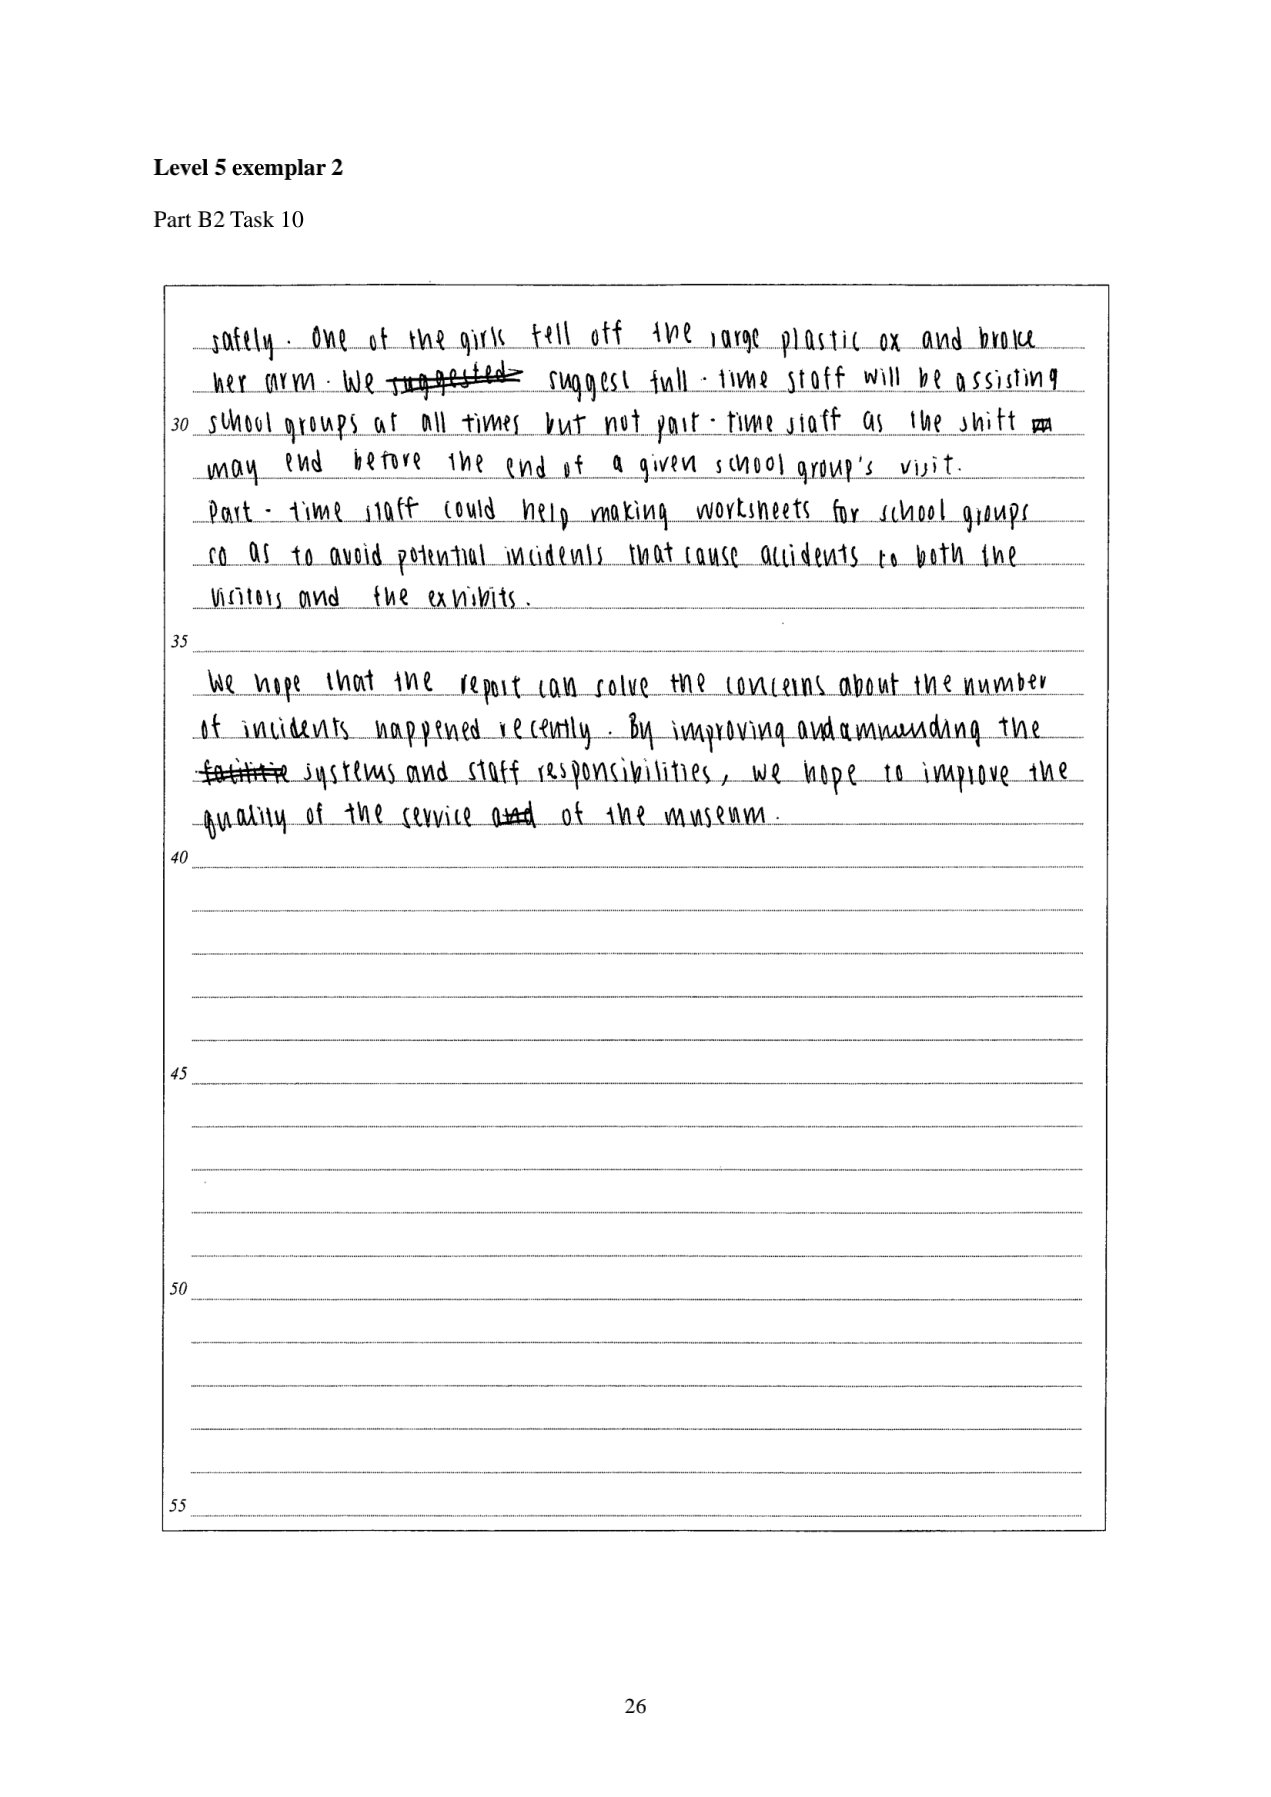 Level 5 exemplar 2
Part B2 Task 10
safely. One of the girls fell off the large plastic ox and broke
her arm. We suggested suggest full-time staff will be assisting
30 school groups at all times but not part-time staff as the shift
may end before the end of a given school group's visit.
Part-time staff could help making worksheets for school groups
so as to avoid potential incidents that cause accidents to both the
visitors and the exhibits.
35
We hope that the report can solve the concerns about the number
of incidents happened recently. By improving and ammending the
facilitie systems and staff responsibilities, we hope to improve the
quality of the service and of the museum.
40
45
50
55
26